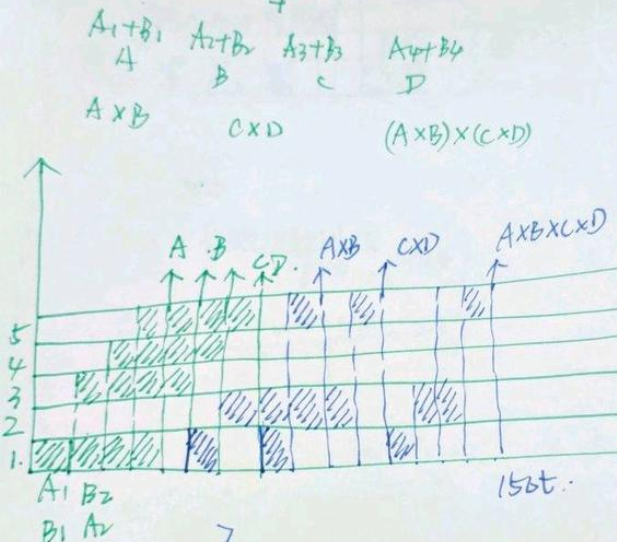 A1+B1 A2+B2 A3+B3 A4+B4
A B C D
A×B C×D (A×B)×(C×D)
A B C D. A×B C×D A×B×C×D
5
4
3
2
1.
15Δt.
A1 B2
B1 A2